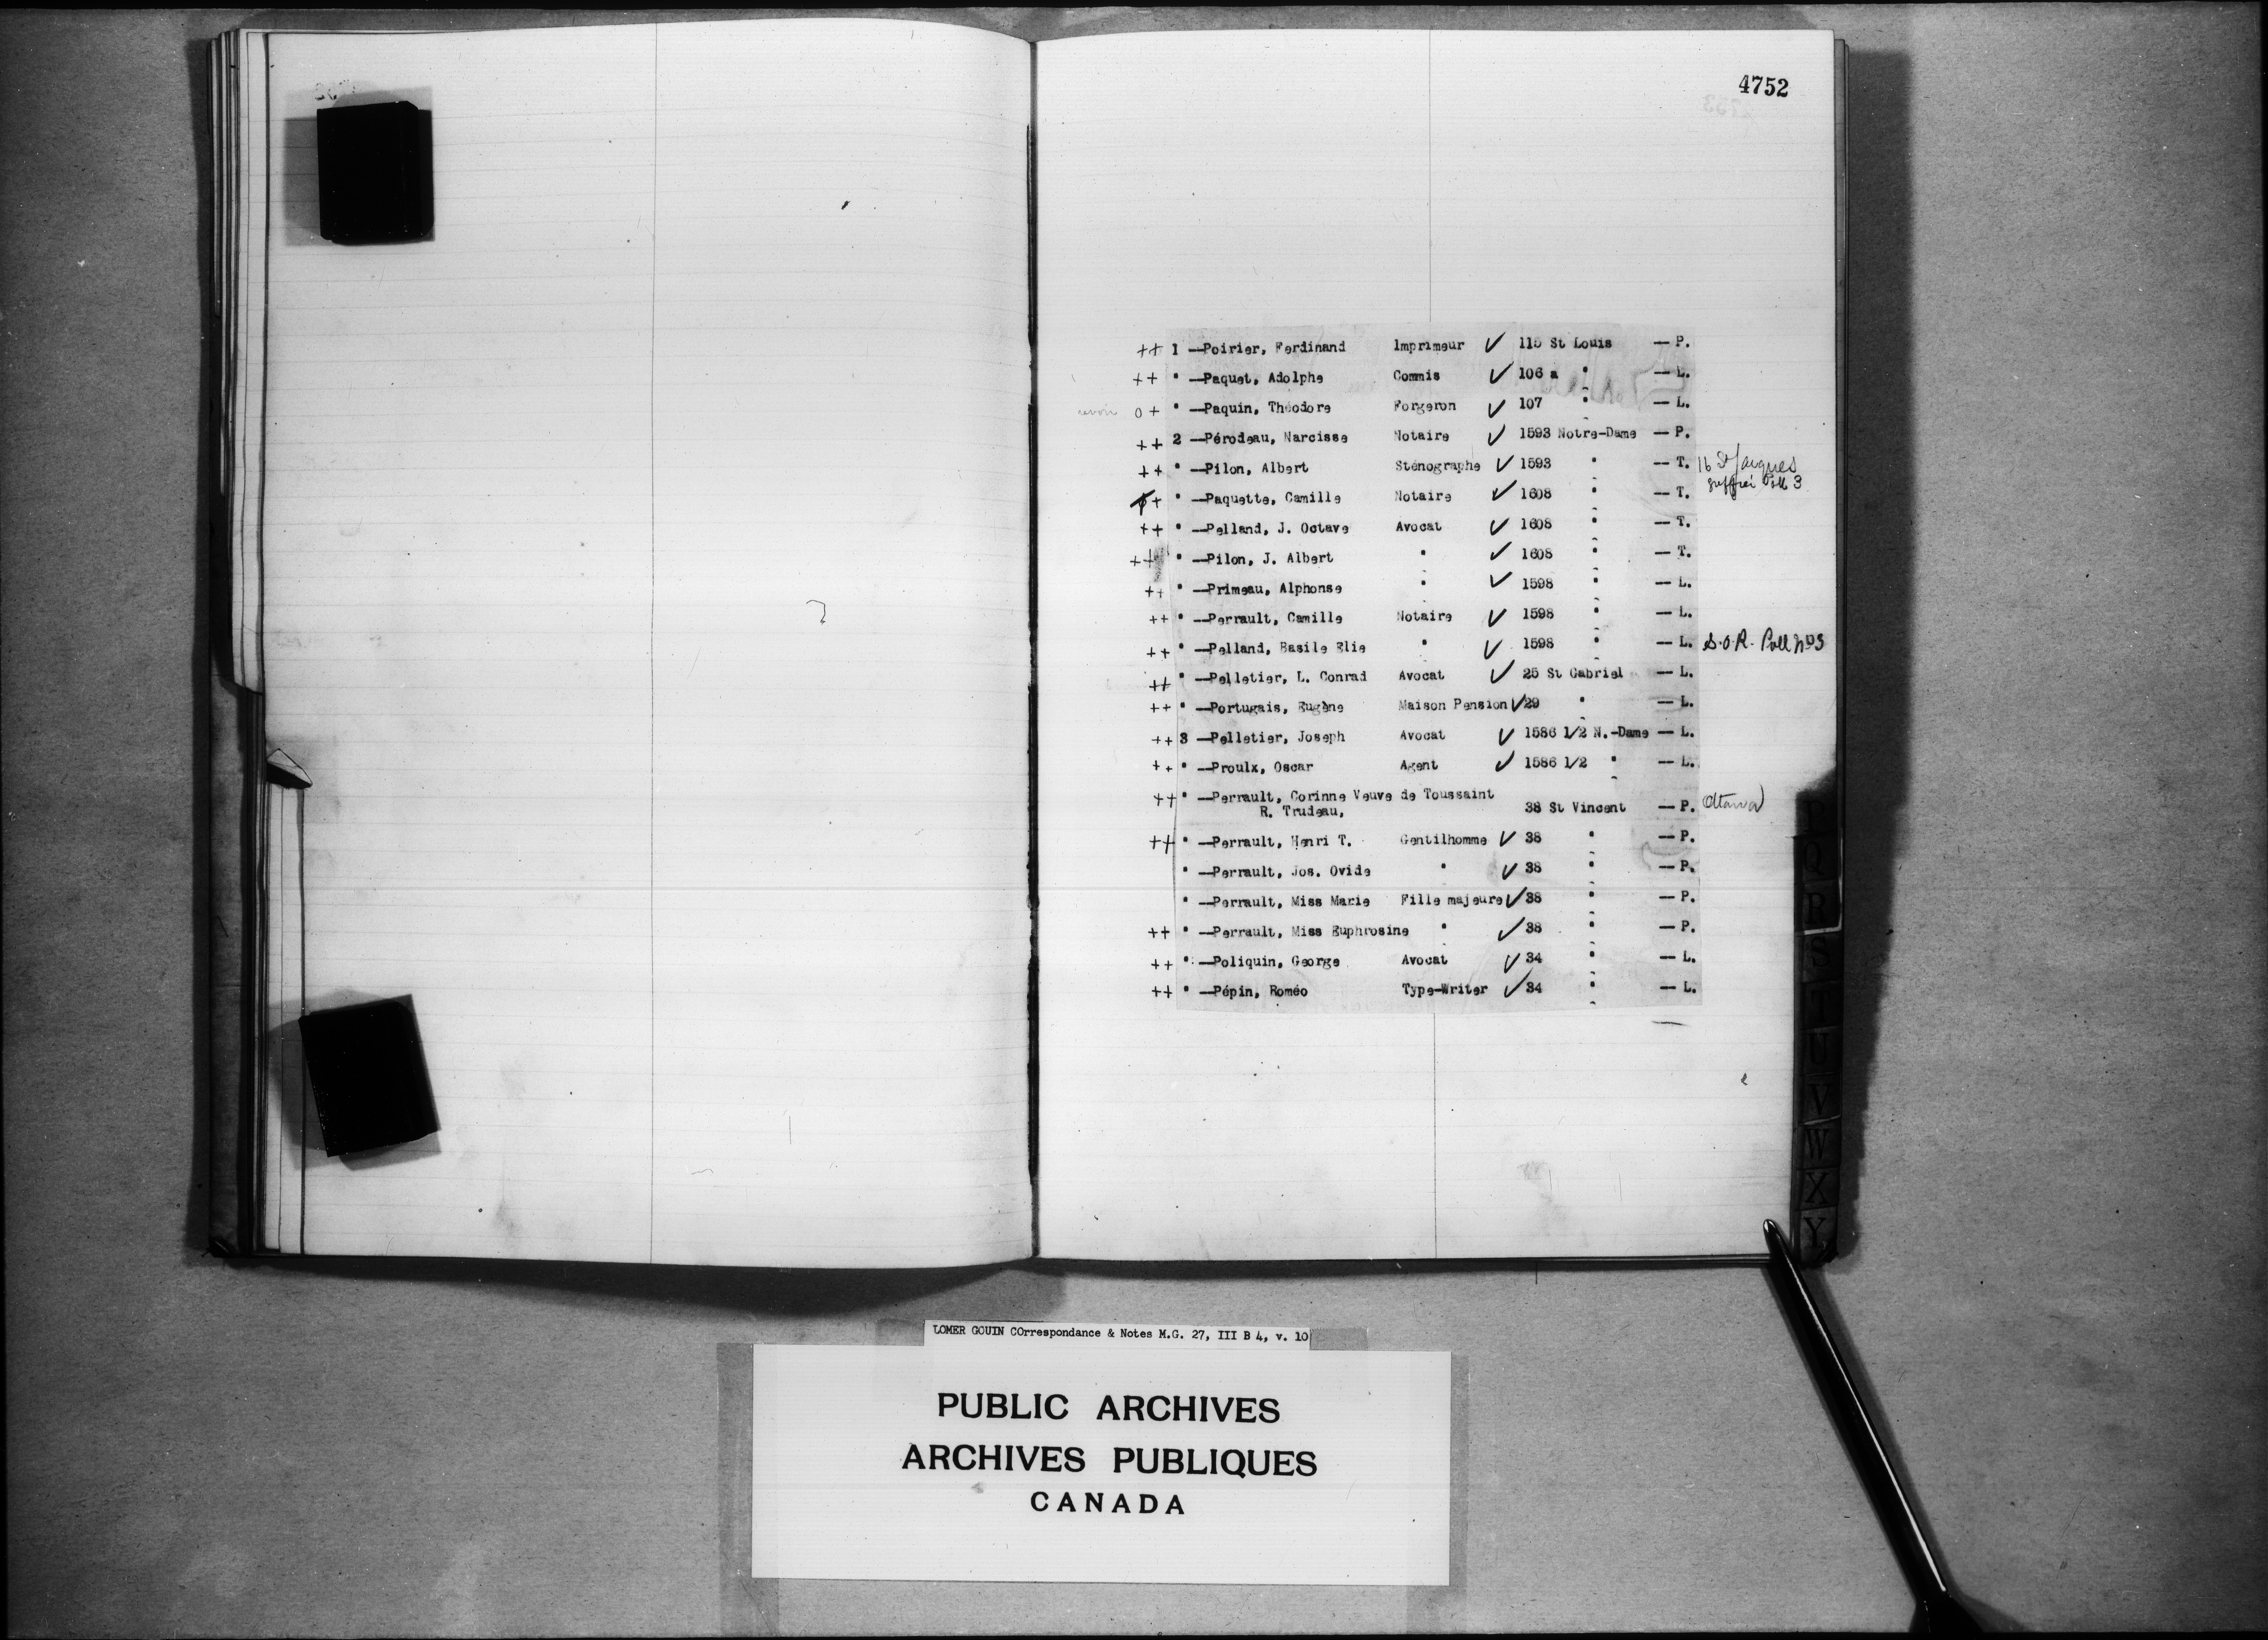 4752
++ 1 —Poirier, Ferdinand Imprimeur ✓ 115 St Louis — P.
++ " —Paquet, Adolphe Commis ✓ 106 a " — L.
o + " —Paquin, Théodore Forgeron ✓ 107 " — L.
++ 2 —Pérodeau, Narcisse Notaire ✓ 1593 Notre-Dame — P.
++ " —Pilon, Albert Sténographe ✓ 1593 " — T. 16 St Jacques
Poll 3
+ " —Paquette, Camille Notaire ✓ 1608 " — T.
++ " —Pelland, J. Octave Avocat ✓ 1608 " — T.
++ " —Pilon, J. Albert " ✓ 1608 " — T.
++ " —Primeau, Alphonse " ✓ 1598 " — L.
++ " —Perrault, Camille Notaire ✓ 1598 " — L.
++ " —Pelland, Basile Elie " ✓ 1598 " — L. S.O.R. Poll No 3
++ " —Pelletier, L. Conrad Avocat ✓ 25 St Gabriel — L.
++ " —Portugais, Eugène Maison Pension ✓ 29 " — L.
++ 3 —Pelletier, Joseph Avocat ✓ 1586 1/2 N.-Dame — L.
++ " —Proulx, Oscar Agent ✓ 1586 1/2 " — L.
++ " —Perrault, Corinne Veuve de Toussaint
R. Trudeau, 38 St Vincent — P. Ottawa
++ " —Perrault, Henri T. Gentilhomme ✓ 38 " — P.
" —Perrault, Jos. Ovide " ✓ 38 " — P.
" —Perrault, Miss Marie Fille majeure ✓ 38 " — P.
++ " —Perrault, Miss Euphrosine " ✓ 38 " — P.
++ " —Poliquin, George Avocat ✓ 34 " — L.
++ " —Pépin, Roméo Type-Writer ✓ 34 " — L.
P
Q
R
S
T
U
V
W
X
Y
LOMER GOUIN COrrespondance & Notes M.G. 27, III B 4, v. 10
PUBLIC ARCHIVES
ARCHIVES PUBLIQUES
CANADA